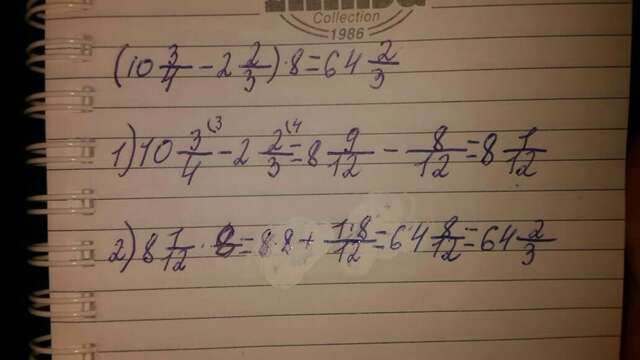 Collection
1986
(10 3/4 - 2 2/3) · 8 = 64 2/3
1) 10 3/4 (3 - 2 2/3 (4 = 8 9/12 - 8/12 = 8 1/12
2) 8 1/12 · 8 = 8 · 8 + 1·8/12 = 64 8/12 = 64 2/3